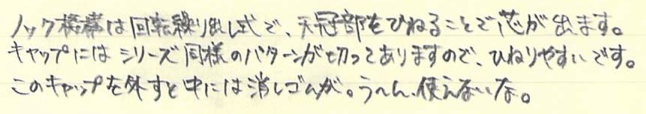 ノック機構は回転繰り出し式で、天冠部をひねることで芯が出ます。
キャップにはシリーズ同様のパターンが切ってありますので、ひねりやすいです。
このキャップを外すと中には消しゴムが。う〜ん、使えないな。